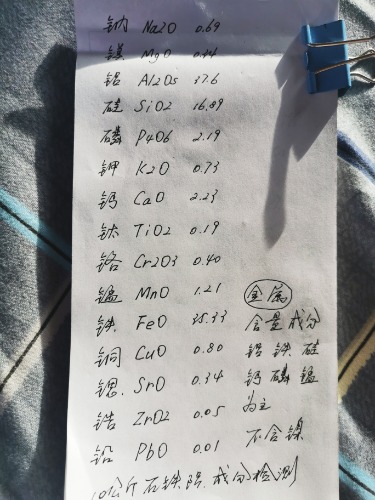 钠 Na2O 0.69
镁 MgO 0.44
铝 Al2O3 37.6
硅 SiO2 16.89
磷 P4O6 2.19
钾 K2O 0.73
钙 CaO 2.23
钛 TiO2 0.19
铬 Cr2O3 0.40
锰 MnO 1.21
铁 FeO 35.33
铜 CuO 0.80
锶 SrO 0.34
锆 ZrO2 0.05
铅 PbO 0.01
金属
含量成分
铝铁硅
钙磷锰
为主
不含镍
10公斤石铁陨成分检测